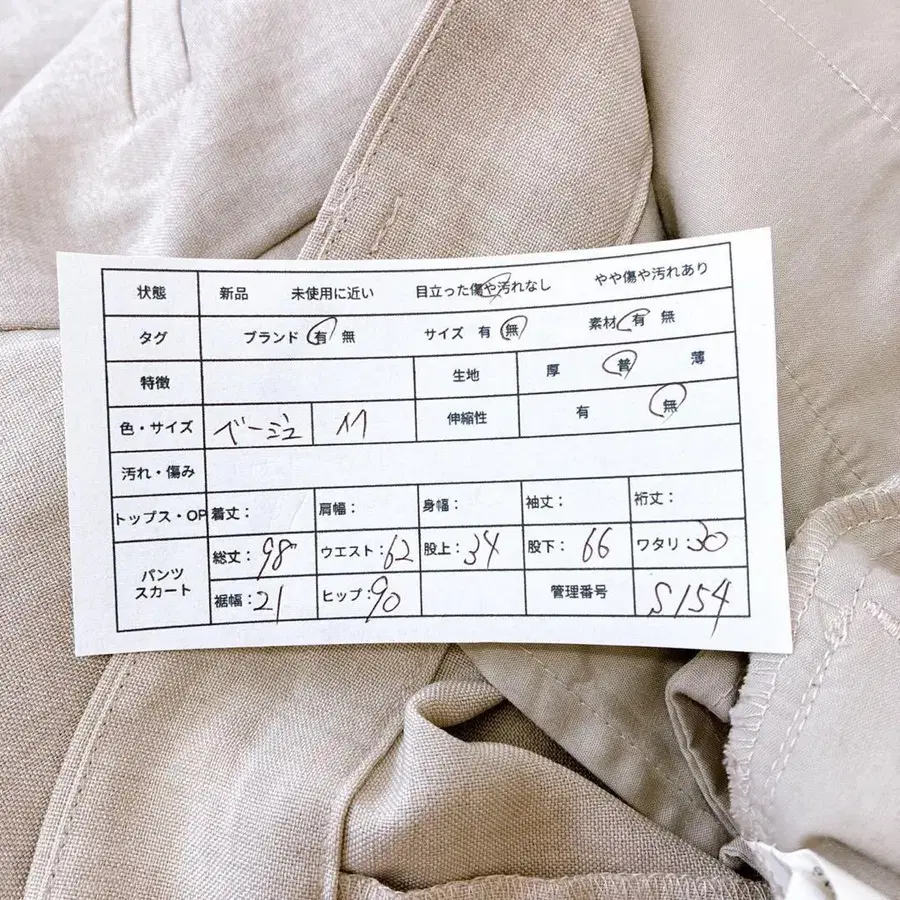 状態 新品 未使用に近い 目立った傷や汚れなし やや傷や汚れあり
タグ ブランド 有 無 サイズ 有 無 素材 有 無
特徴 生地 厚 普 薄
色・サイズ ベージュ M 伸縮性 有 無
汚れ・傷み
トップス・OP 着丈: 肩幅: 身幅: 袖丈: 裄丈:
パンツ スカート 総丈:98 ウエスト:62 股上:34 股下:66 ワタリ:30
裾幅:21 ヒップ:90 管理番号 S154